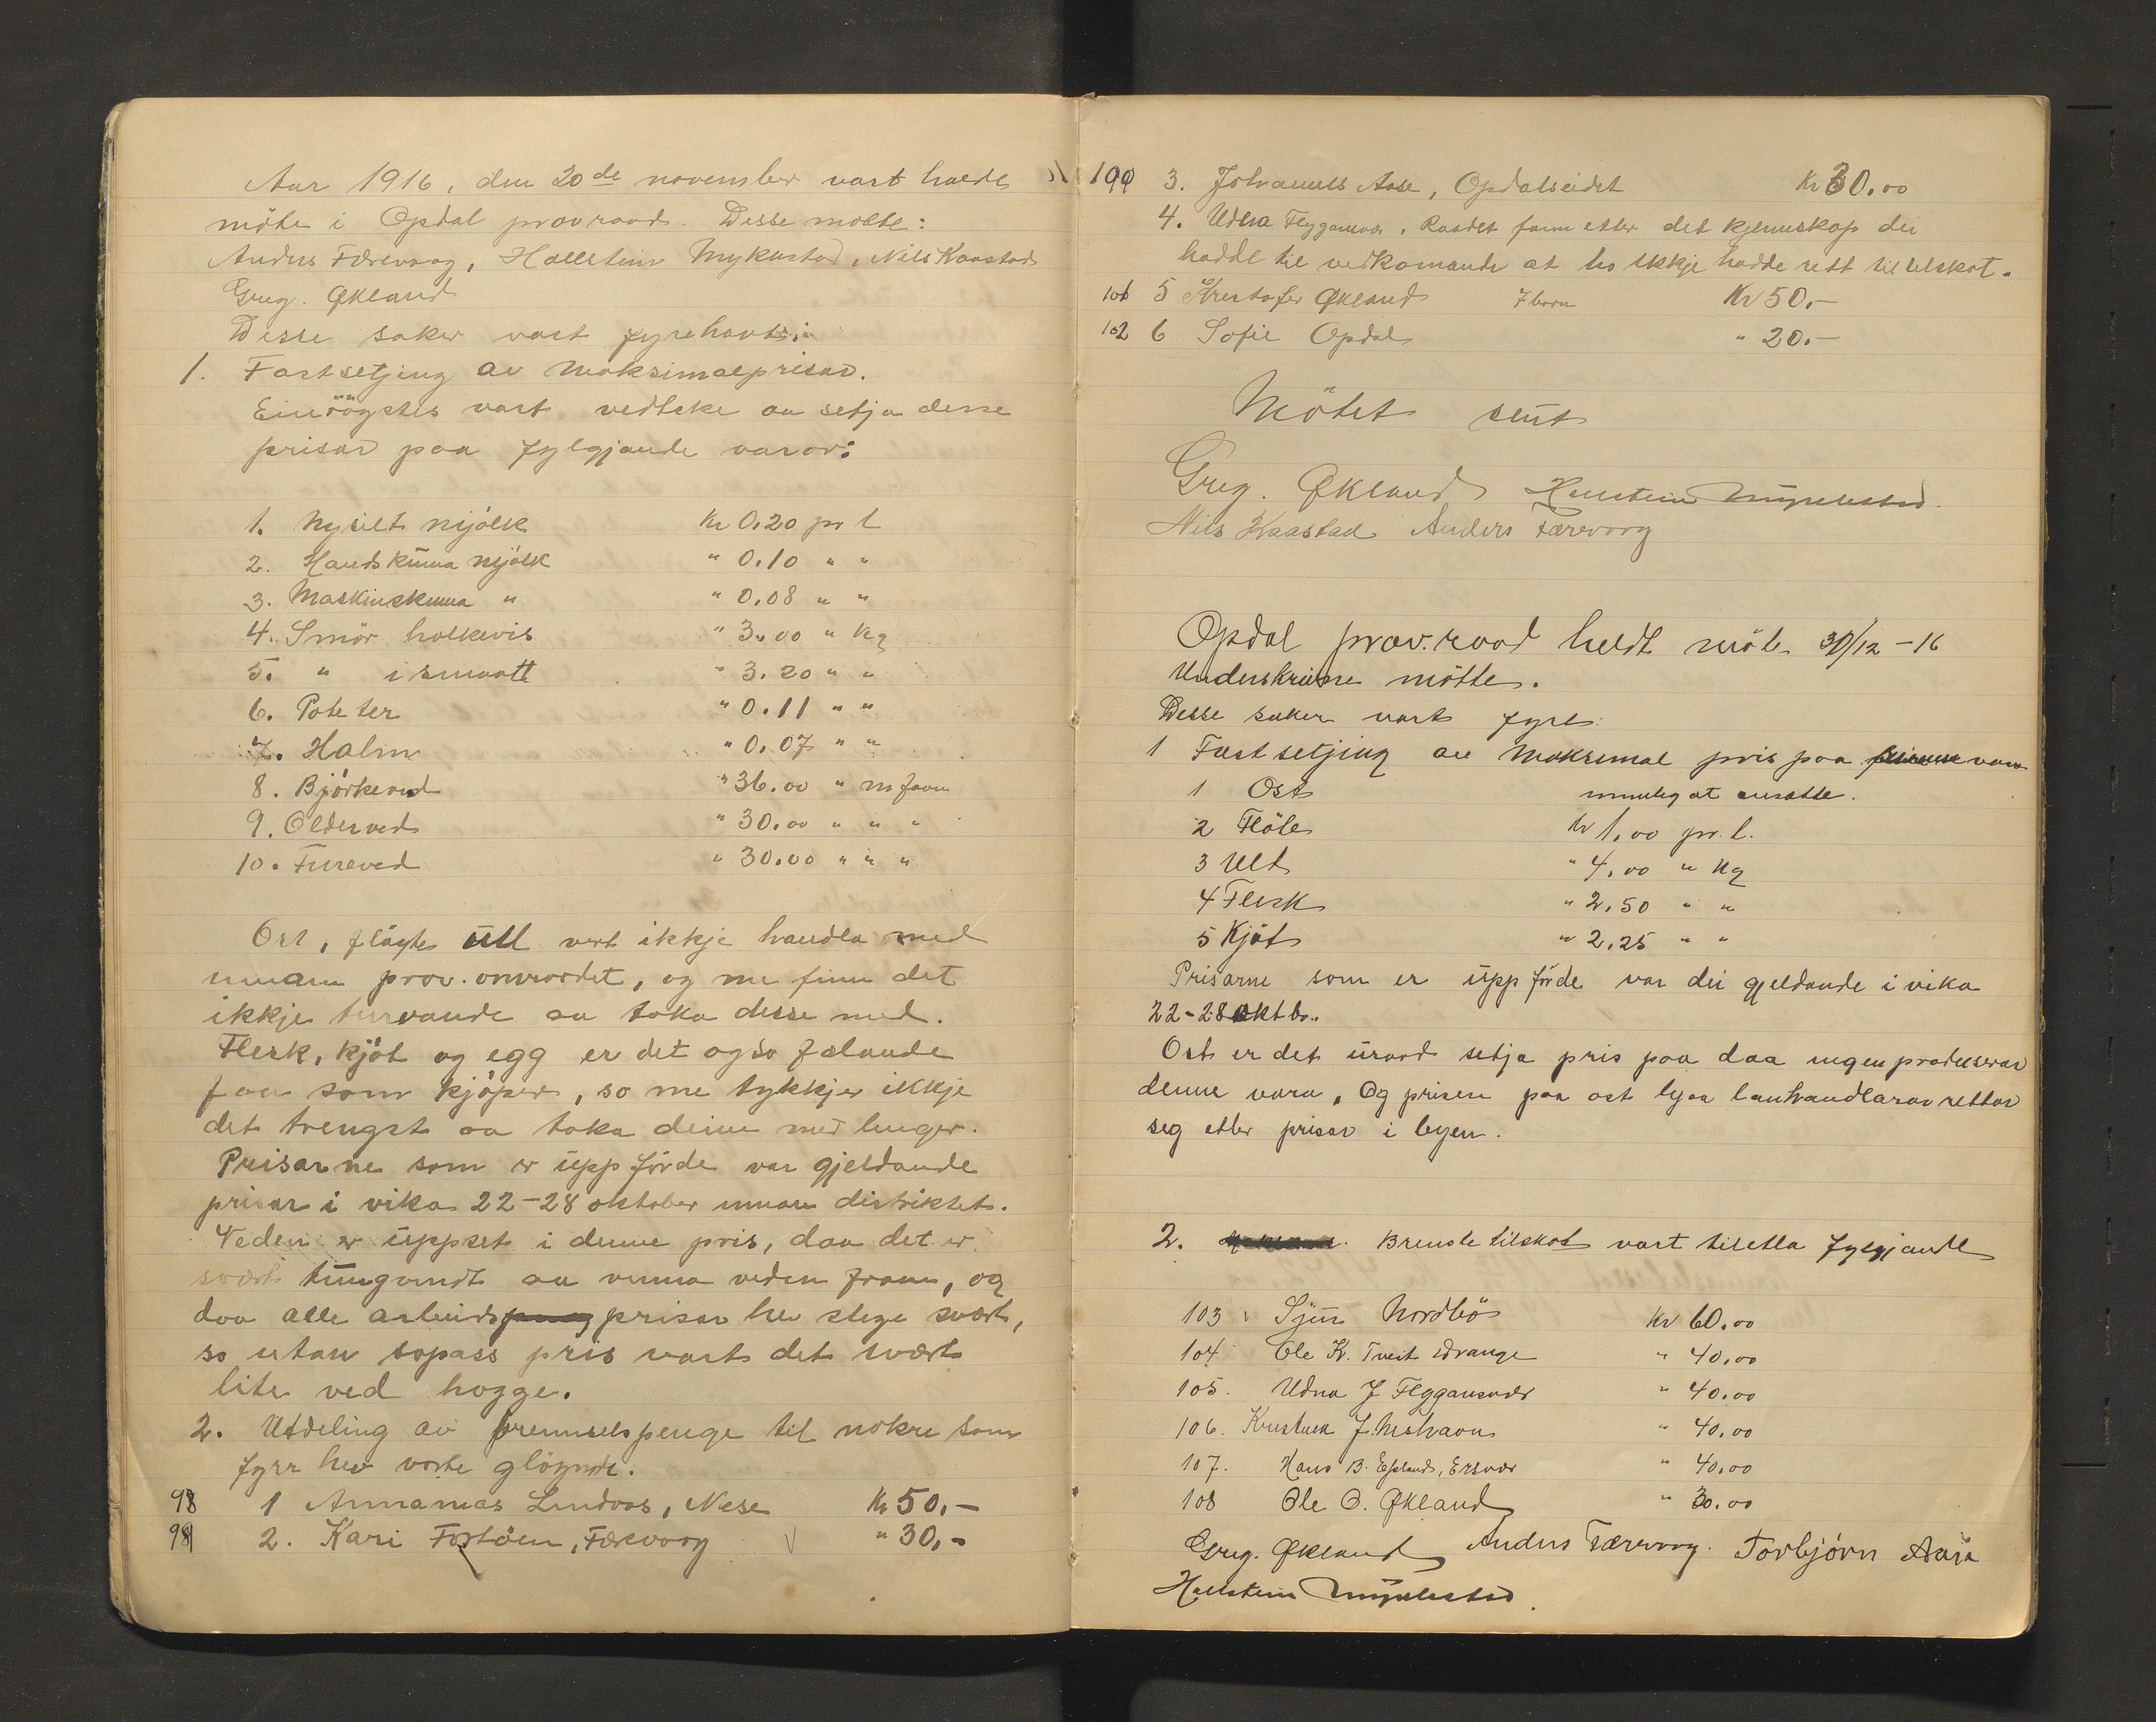 Aar 1916, den 20de november vart halde
möte i Opdal provraad. Desse møtte:
Anders Færevaag, Hallstein Myklestad, Nils Kaastad
Greg. Økland
Desse saker vart fyrehavt:
1. Fastsetjing av maksimalprisar.
Einröystes vart vedteke aa setja desse
prisar paa fylgjande varor:
1. Nysilt mjölk Kr 0,20 pr l
2. Handskuma mjölk " 0,10 " "
3. Maskinskuma " " 0,08 " "
4. Smör holkevis " 3,00 " kg
5. " i smaatt " 3,20 " "
6. Poteter " 0,11 " "
7. Halm " 0,07 " "
8. Björkeved " 36.00 " m favn
9. Olderved " 30.00 " " "
10. Fureved " 30.00 " " "
Ost, flöyte ull vert ikkje handla med
innan prov. omraadet, og me finn det
ikkje turvande aa taka desse med.
Flesk, kjöt og egg er det ogso
faa som kjöper, so me tykkjer ikkje
det trengst aa taka deim med lenger.
Prisarne som er uppförde var gjeldande
prisar i vika 22-28 oktober innan distriktet.
Veden er uppset i denne pris, daa det er
svært tungvindt aa vinna veden fram, og
daa alle arbeids prisar hev stege svært,
so utan sopass pris vart det svært
lite ved hogge.
2. Utdeling av brennselspenge til nokre som
fyrr hev vorte glöymde.
98 1 Annanias Lindaas, Nese Kr 50,-
99 2. Kari Fostöen, Færevaag " 30,-
100 3. Johannes Aase, Opdalseidet Kr 30.00
4. Udna Flygansvær. Raadet fann etter det kjennskap dei
hadde til vedkomande at ho ikkje hadde rett til tilskot.
101 5 Kristofer Økland 7 born Kr 50.-
102 6 Sofie Opdal " 20.-
Mötet slut
Greg. Økland Hallstein Myklestad.
Nils Kaastad Anders Færevaag
Opdal prov.raad heldt möte 30/12-16
Underskrivne mötte.
Desse saker vart fyre:
1 Fastsetjing av maksimal pris paa varor
1 Ost umuleg at ansætte.
2 Flöte Kr 1,00 pr. l.
3 Ull " 4,00 " Kg
4 Flesk " 2,50 " "
5 Kjöt " 2,25 " "
Prisarne som er uppförde var dei gjeldande i vika
22-28 oktbr..
Ost er det uraad setja pris paa daa ingen produserar
denne vara, Og prisen paa ost hjaa landhandlarar rettar
seg etter prisar i byen.
2. Brensle tilskot vart tiletla fylgjande
103 Sjur Nordbö Kr 60,00
104 Ole K. Tveit Drange " 40,00
105. Udna J Flygansvær " 40,00
106. J. " 40,00
107. Hans B. Epland, Ersvær " 40,00
108 Ole O. Økland " 30.00
Greg. Økland Anders Færevaag. Torbjörn Aasa
Hallstein Myklestad.